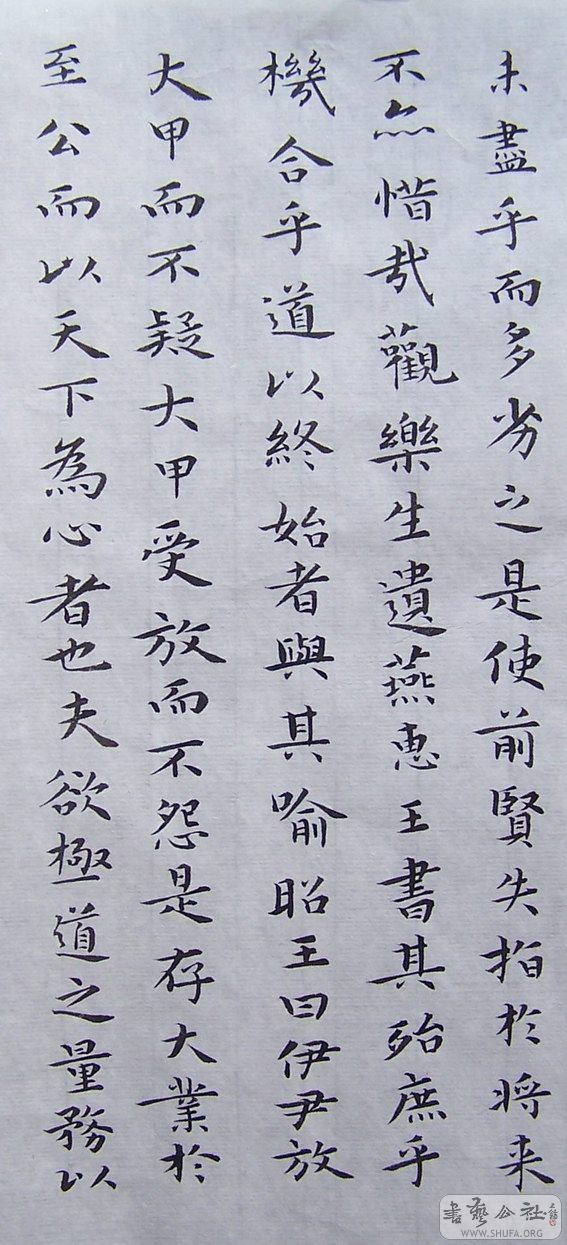 未盡乎而多劣之是使前賢失指於將来
不亦惜哉觀樂生遺燕惠王書其殆庶乎
機合乎道以終始者與其喻昭王曰伊尹放
大甲而不疑大甲受放而不怨是存大業於
至公而以天下為心者也夫欲極道之量務以
書藝公社
WWW.SHUFA.ORG